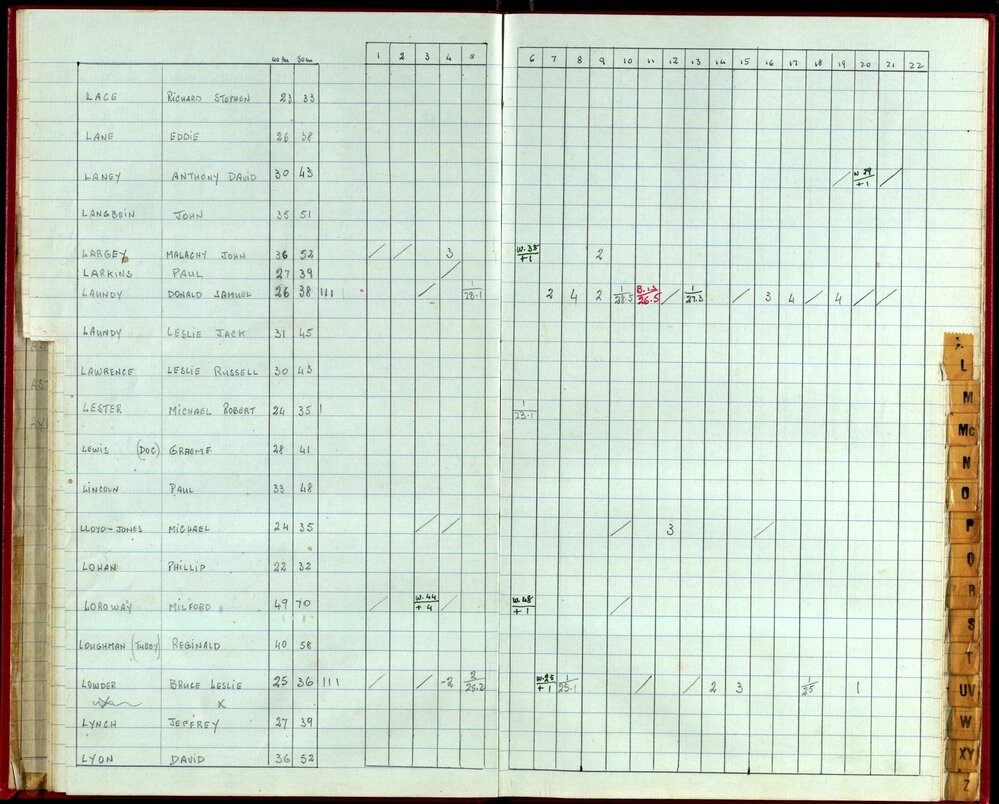 40m 50m 1 2 3 4 5 6 7 8 9 10 11 12 13 14 15 16 17 18 19 20 21 22
LACE RICHARD STEPHEN 23 33
LANE EDDIE 26 38
LANEY ANTHONY DAVID 30 43 / W.29 +1 /
LANGBEIN JOHN 35 51
LARGEY MALACHY JOHN 36 52 / / 3 W.35 +1 2
LARKINS PAUL 27 39 /
LAUNDY DONALD SAMUEL 26 38 111 / 1 28.1 2 4 2 1 28.5 26.5 / 1 27.3 / 3 4 / 4 / /
LAUNDY LESLIE JACK 31 45
LAWRENCE LESLIE RUSSELL 30 43
LESTER MICHAEL ROBERT 24 35 1 1 23.1
LEWIS (DOC) GRAEME 28 41
LINCOLN PAUL 33 48
LLOYD-JONES MICHAEL 24 35 / / / 3 /
LOHAN PHILLIP 22 32
LOROWAY MILFORD 49 70 / W.44 +4 / W.48 +1 /
LOUGHMAN (TUBBY) REGINALD 40 58
LOWDER BRUCE LESLIE 25 36 111 / / -2 2 25.2 W.25 +1 1 25.1 / / 2 3 1 25 1
X
LYNCH JEFFREY 27 39
LYON DAVID 36 52
L
M
Mc
N
O
P
Q
R
S
T
UV
W
XY
Z